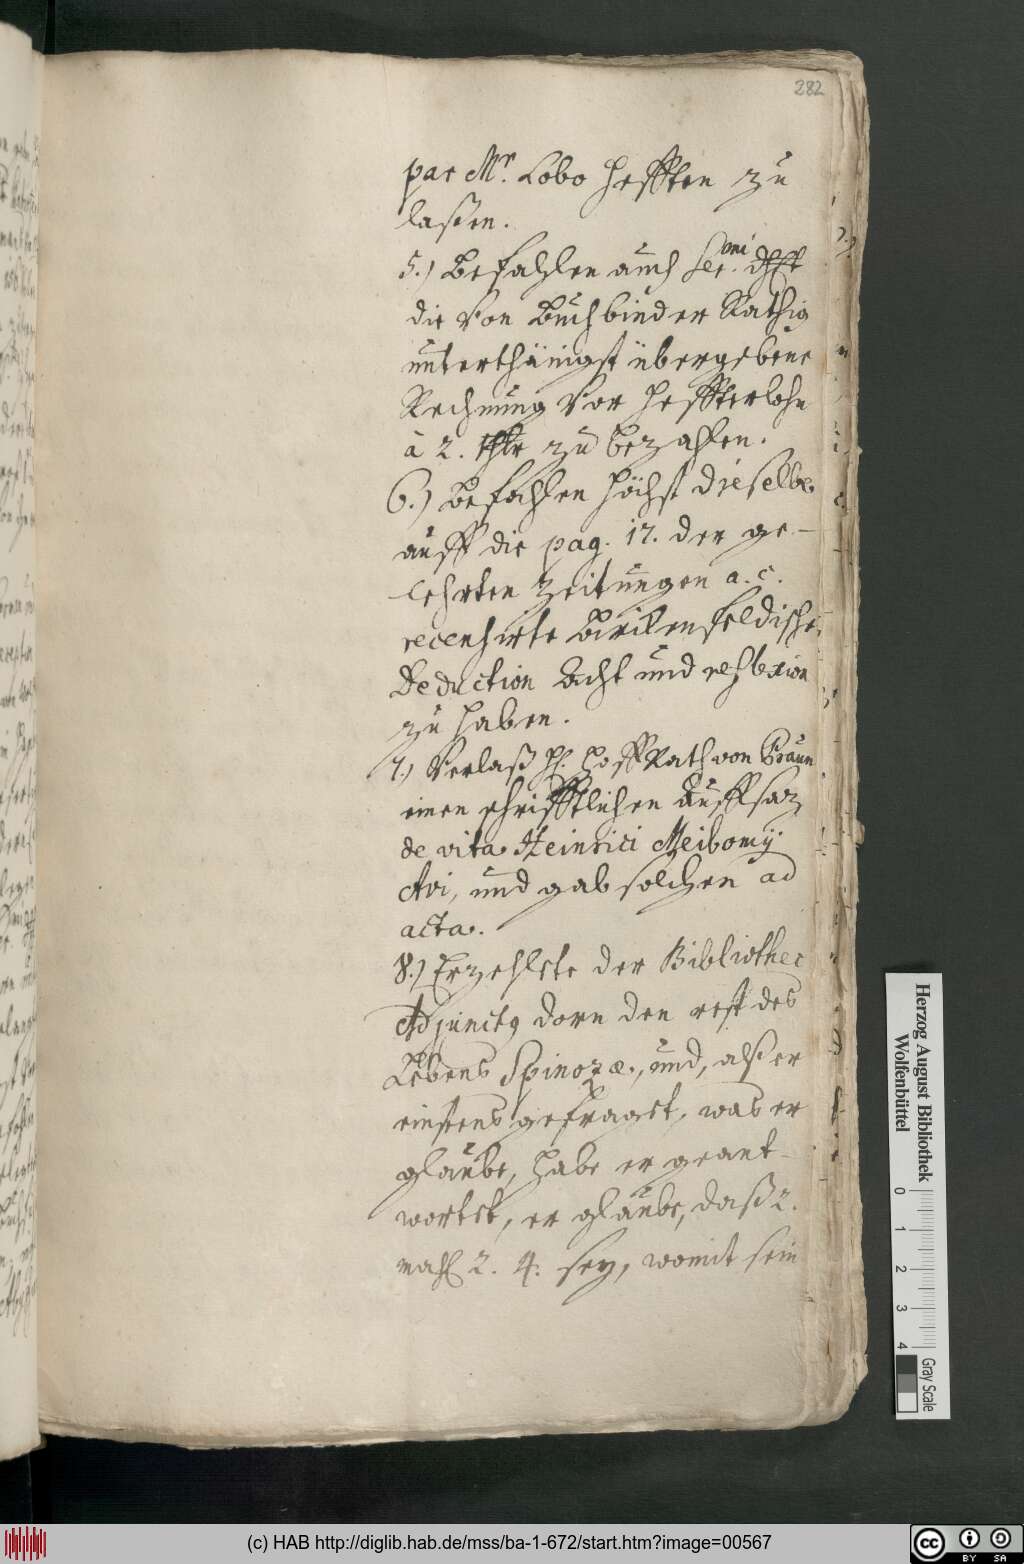 282
par Mr. Lobo hefften zu
laßen.
5.) Befahlen auch Ser.mi dhlt
die von Buchbinder Rathig
unterthänigst übergebene
Rechnung vor heffterlohn
à 2. thlr zu bezahlen.
6.) Befohlen höchst dieselbe
auff die pag. 17. der ge-
lehrten Zeitungen a. c.
recensirte Birkenfeldische
Deduction Acht und reflexion
zu haben.
7.) Verlaß H. HoffRath von Praun
einen schrifftlichen Auffsaz
de vita Heinrici Meibomij
Avi, und gab solchen ad
acta.
8.) Erzehlete der Bibliothec
Adjunctus Dorn den rest des
Lebens Spinozæ, und, alß er
einstens gefraget, was er
glaube, habe er geant-
wortet, er glaube, daß 2.
mahl 2. 4. sey, womit sein
Herzog August Bibliothek
Wolfenbüttel
0 1 2 3 4
Gray Scale
(c) HAB http://diglib.hab.de/mss/ba-1-672/start.htm?image=00567
cc BY SA